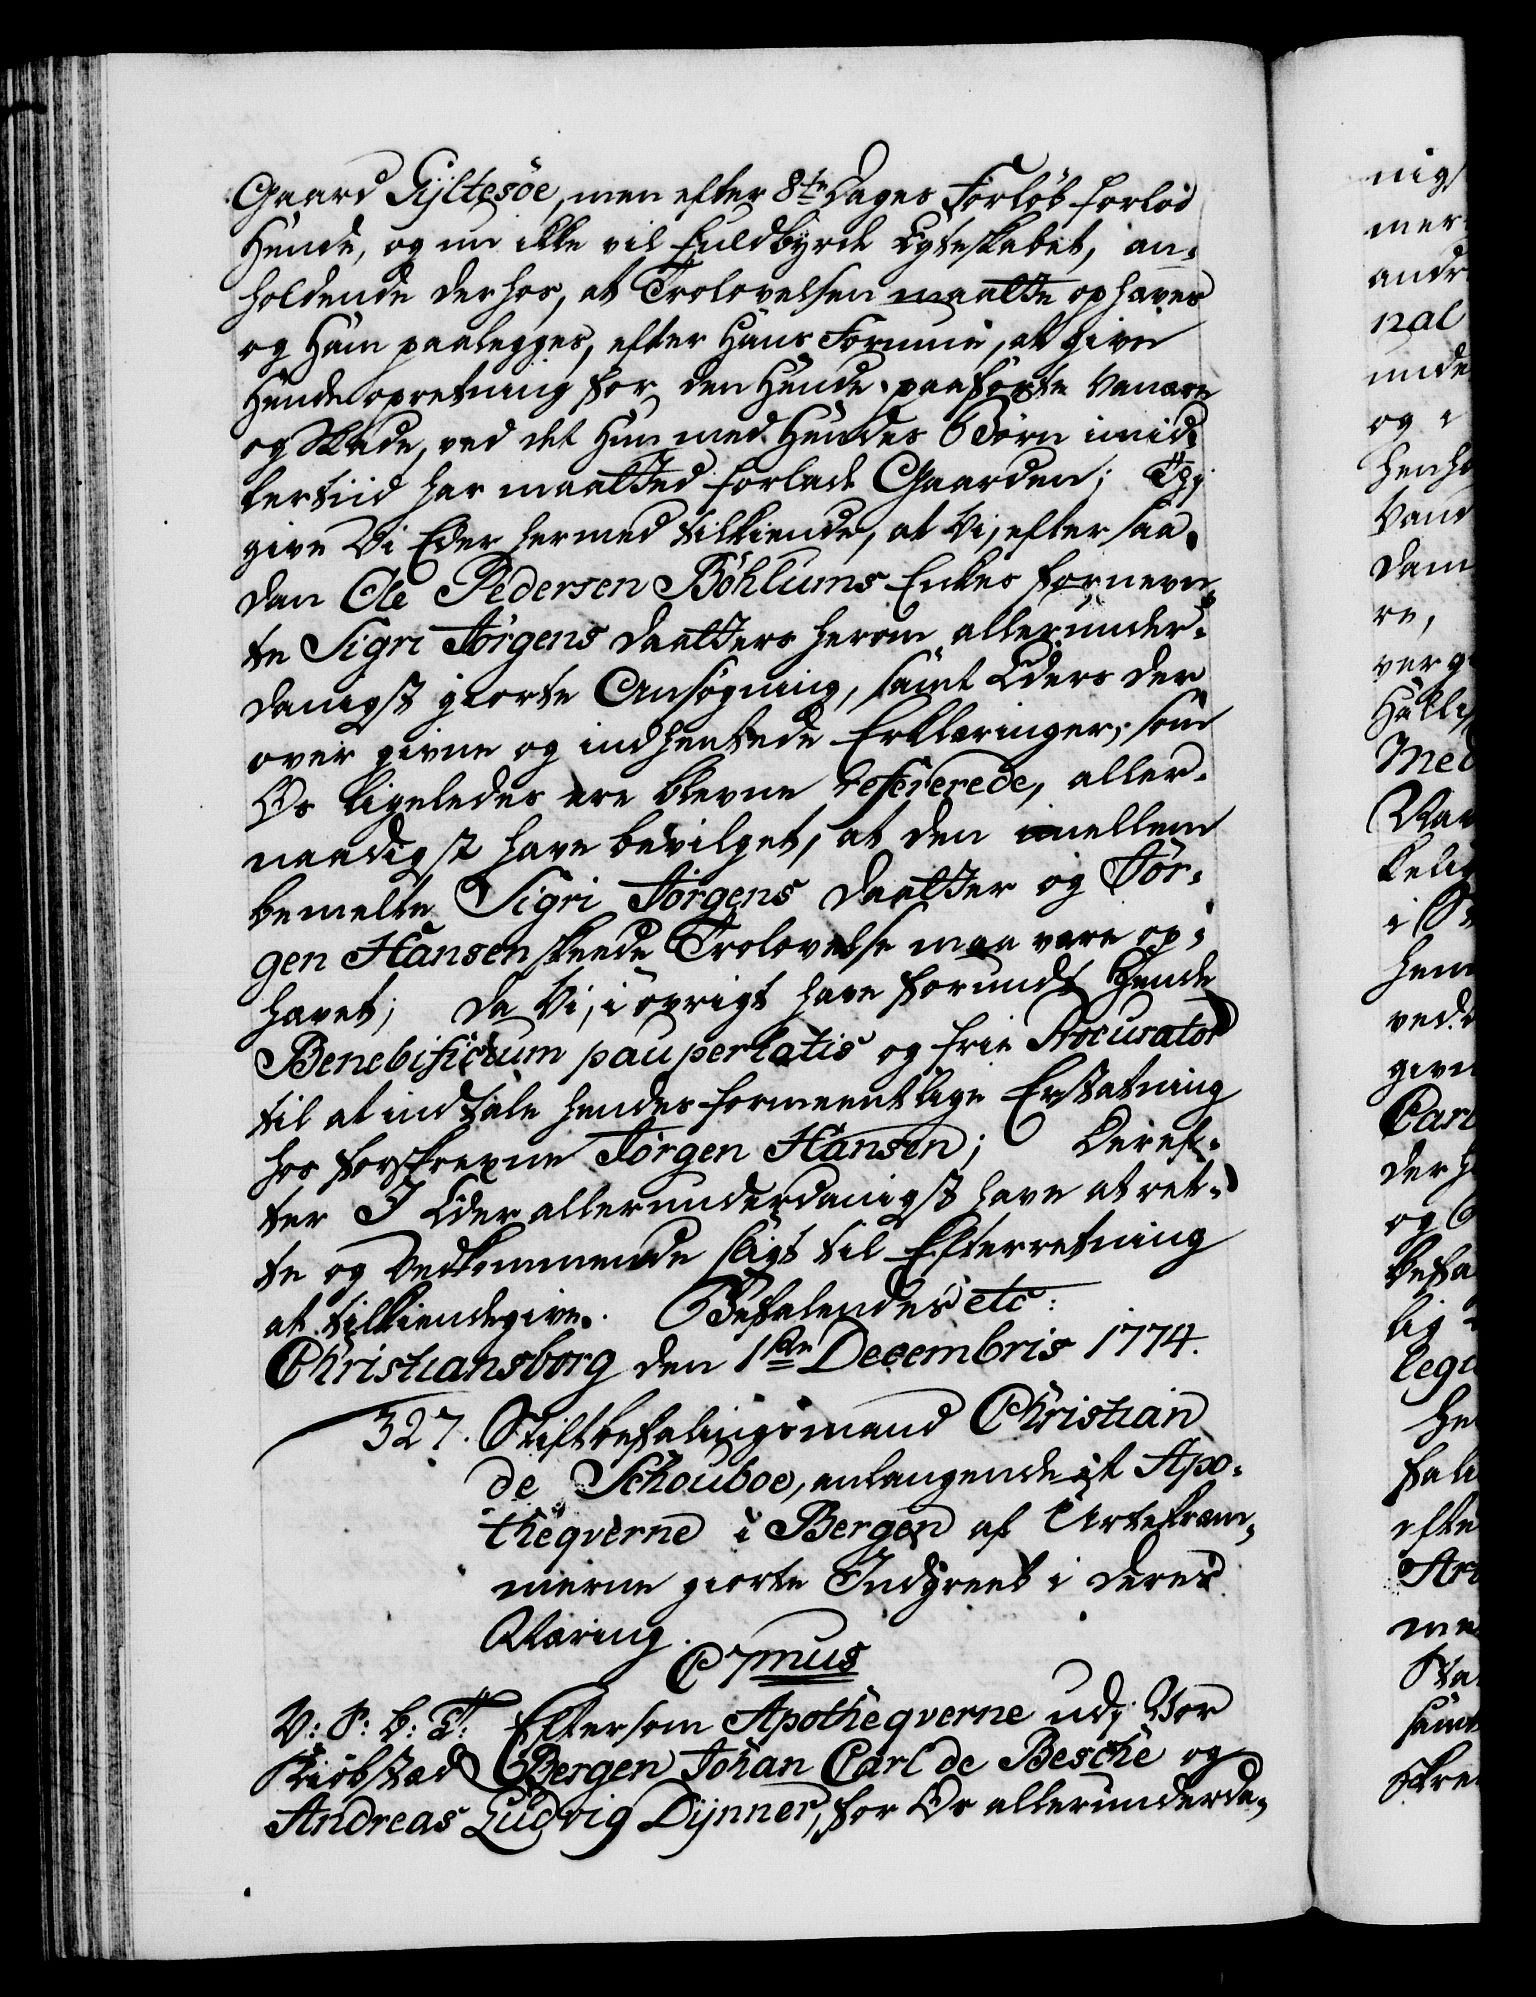 Gaard Gÿltesöe, men efter 8te Dages Forløb forlod
Hende, og nu ikke vil fuldbÿrde Egteskabet, an-
holdende derhos, at Trolovelsen maatte ophæves
og Ham paalegges, efter Hans Formue, at give
Hende opretning for den Hende paaførte Vanære
og Skade, ved det Hun med Hendes 6 Børn imid-
lertiid har maatted forlade Gaarden; Thj
give Vi Eder hermed tilkiende, at Vi, efter saa-
dan Ole Pedersen Böhlums Enkes fornevn-
te Sigri Jörgens Daatters herom allerunder-
danigst giorte Ansøgning, samt Eders der
over givne og indhentede Erklæringer, som
Os ligeledes ere blevne refererede, aller-
naadigst have bevilget, at den imellem
bemelte Sigri Jörgens Daatter og Jör-
gen Hansen skeede Trolovelse maa være op-
hævet; Da Vi, i øvrigt have forundt Hende
Benebificium paupertatis og frie Procurator
til at indtale hendes formeentlige Erstatning
hos forskrevne Jörgen Hansen; Deref-
ter I Eder allerunderdanigst have at ret-
te og Vedkommende sligt til Efterretning
at tilkiendegive. Befalendes etc:
Christiansborg den 1ste Decembris 1774.
327. Stiftbefalingsmand Christian
de Schouboe, anlangende et Apo-
theqverne i Bergen af Urtekræm-
merne giorte Indgreeb i deres
Næring.
C7mus
V: S: B: T: Eftersom Apotheqverne udj Vor
Kiøbstad Bergen Johan Carl de Besche og
Andreas Ludvig Dÿnner, for Os allerunderda-